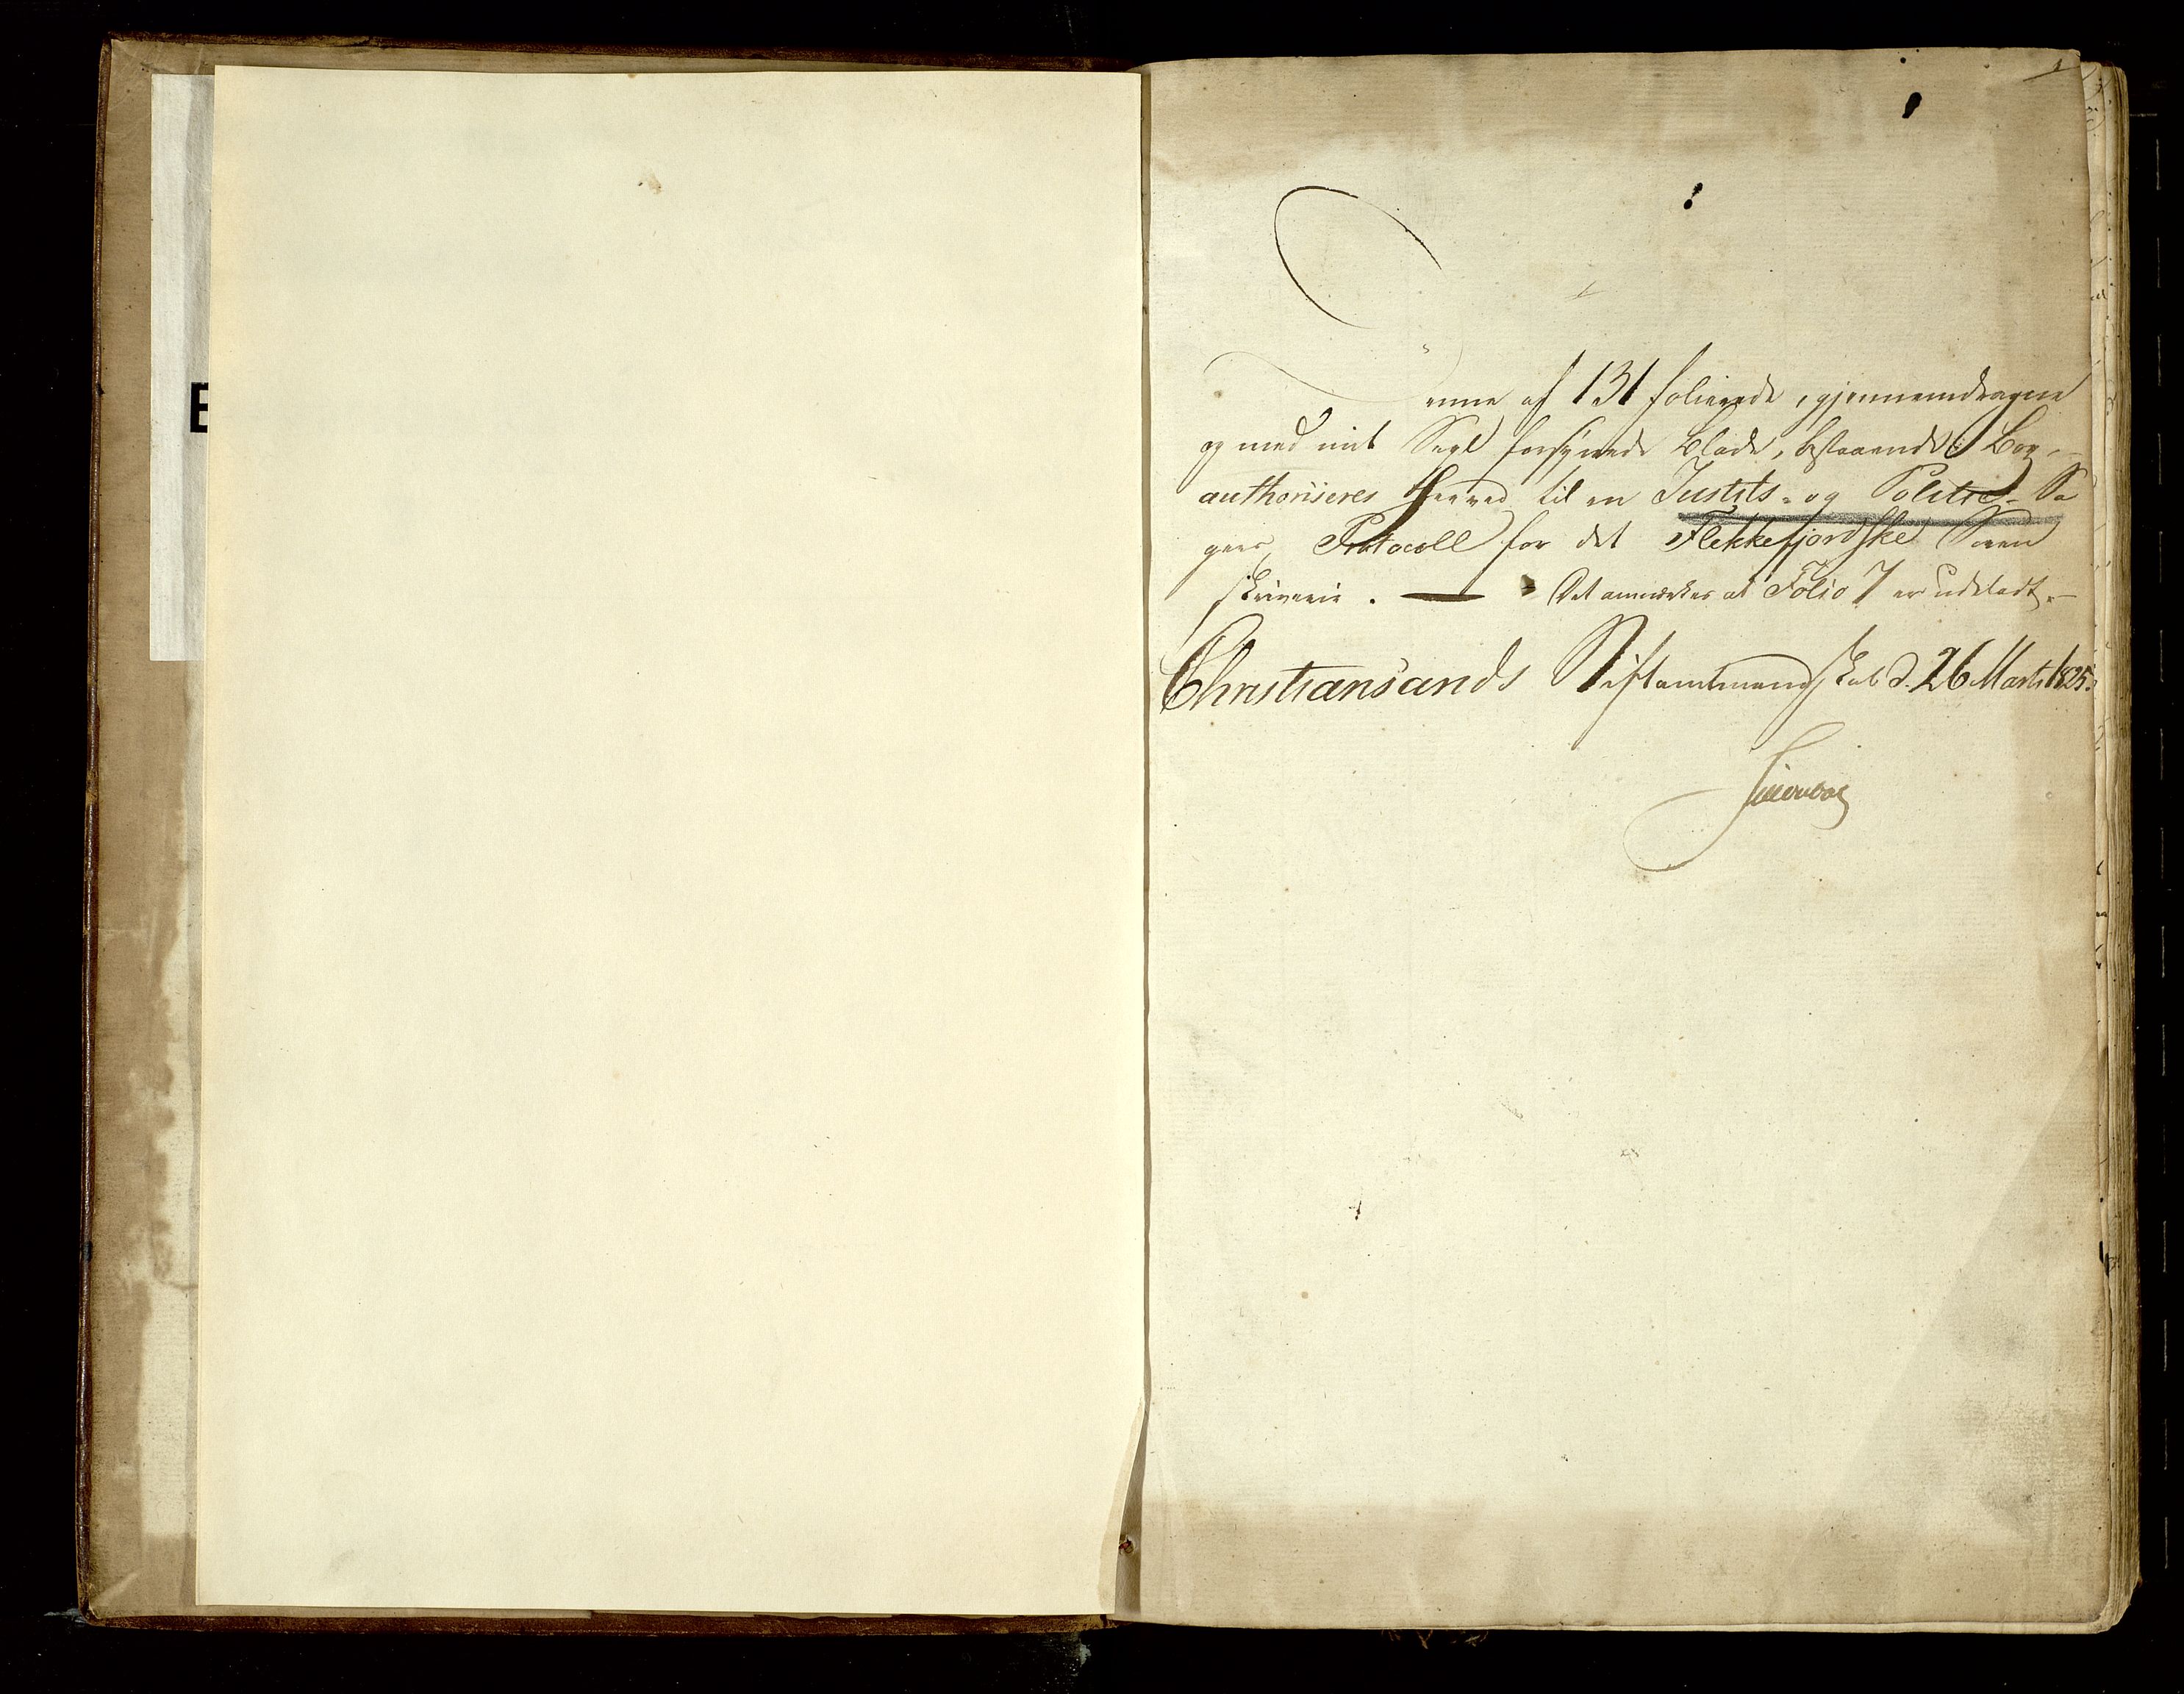 E
1
Denne af 131 folierede, gjennemdragne
og med mit Segl forsynede Blade, bestaaende Bog,
authoriseres herved til en Justits- og Politie-Sa
gers Protocoll for det Flekkefjordske Soren
skriverie. — Det anmærkes at Folio 7 er udeladt.
Christiansands Stiftamtmandskab d. 26 Marts 1825.